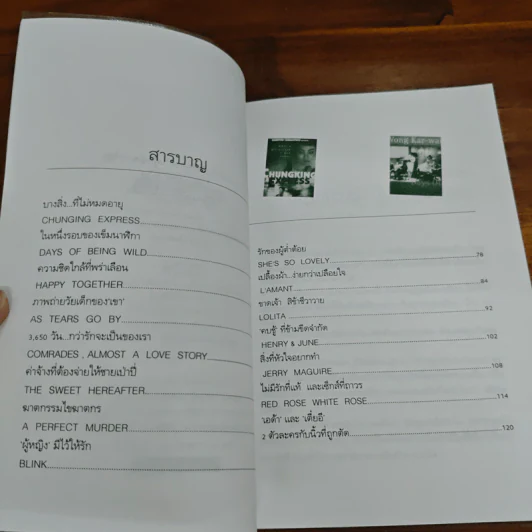 สารบาญ
บางสิ่ง...ที่ไม่หมดอายุ
CHUNGING EXPRESS
ในหนึ่งรอบของเข็มนาฬิกา
DAYS OF BEING WILD
ความชิดใกล้ที่พร่าเลือน
HAPPY TOGETHER
ภาพถ่ายวัยเด็กของ'เขา'
AS TEARS GO BY
3,650 วัน...กว่ารักจะเป็นของเรา
COMRADES, ALMOST A LOVE STORY
ค่าจ้างที่ต้องจ่ายให้ชายเป่าปี่
THE SWEET HEREAFTER
ฆาตกรรมไขฆาตกร
A PERFECT MURDER
'ผู้หญิง' มีไว้ให้รัก
BLINK
CHUNGKING EXPRESS
Wong Kar-wai
รักของผู้ต่ำต้อย
SHE'S SO LOVELY 78
เปลื้องผ้า...ง่ายกว่าเปลือยใจ
L'AMANT 84
ชาตเจ้า สิช้าชีวาวาย
LOLITA 92
'คบชู้' ที่ข้ามขีดจำกัด
HENRY & JUNE 102
สิ่งที่หัวใจอยากทำ
JERRY MAGUIRE 108
ไม่มีรักที่แท้ และเซ็กส์ที่ถาวร
RED ROSE WHITE ROSE 114
'เอด้า' และ 'เตี่ยอี'
2 ตัวละครกับนิ้วที่ถูกตัด 120